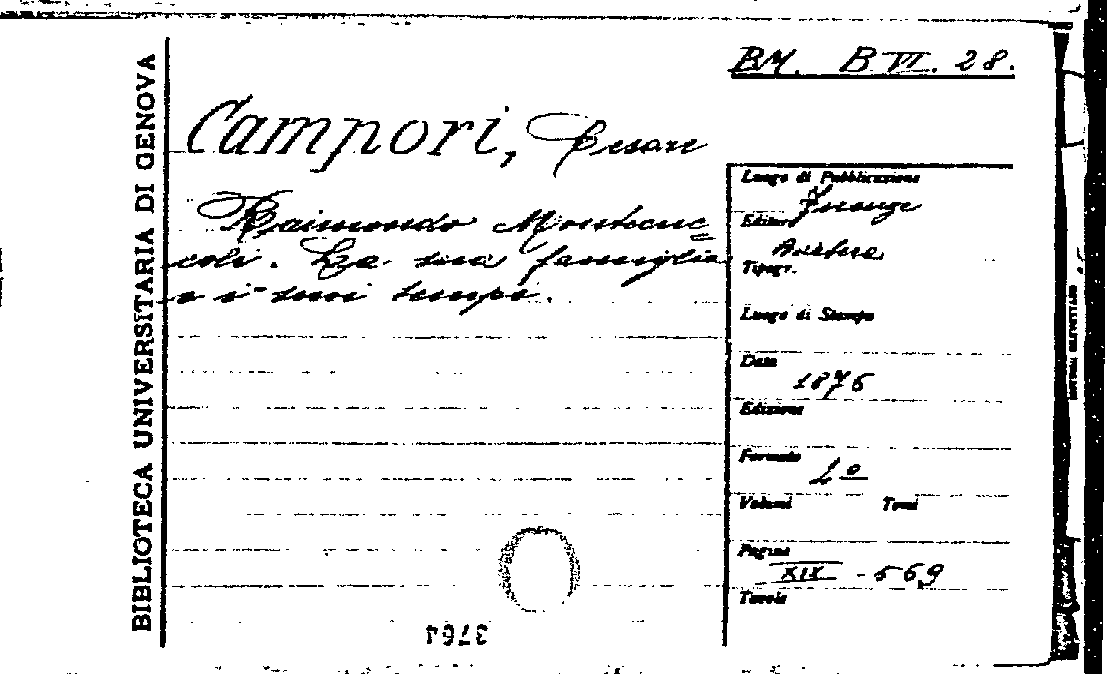 BIBLIOTECA UNIVERSITARIA DI GENOVA
BM. B VI. 28.
Campori, Cesare
Raimondo Montecuc=
coli. La sua famiglia
e i suoi tempi.
Luogo di Pubblicazione
Firenze
Editore
Barbèra
Tipogr.
Luogo di Stampa
Data
1876
Edizione
Formato
Volumi Tomi
Pagine
XIX - 569
Tavole
3764